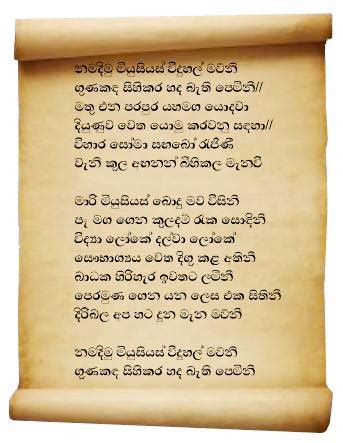 නමදිමු මියුසියස් විදුහල් මවනි
ගුණකඳ සිහිකර හද බැති පෙමිනි//
මතු එන පරපුර යහමග යොදවා
දියුණුව වෙත යොමු කරවනු සඳහා//
විහාර සෝමා සඟබෝ රැජිණි
වැනි කුල අඟනන් බිහිකල මැනවි
මාරි මියුසියස් බොදු මව විසිනි
පෑ මග ගෙන කුලදම් රැක සොදිනි
විද්‍යා ලෝකේ දල්වා ලෝකේ
සෞභාග්‍යය වෙත දිගු කළ අතිනි
බාධක හිරිහැර ඉවතට ලමිනි
පෙරමුණ ගෙන යන ලෙස එක සිතිනි
දිරිබල අප හට දුන මැන මවනි
නමදිමු මියුසියස් විදුහල් මවනි
ගුණකඳ සිහිකර හද බැති පෙමිනි